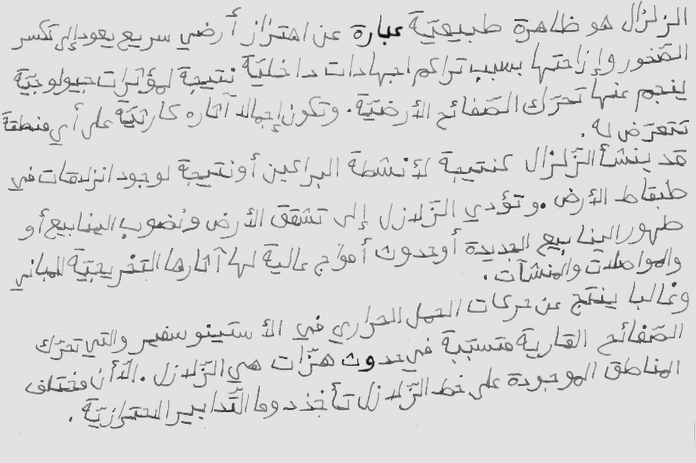 الزلزال هو ظاهرة طبيعيّة عبارة عن اهتزاز أرضي سريع يعود إلى تكسر
الصّخور وإزاحتها بسبب تراكم اجهادات داخليّة نتيجة لمؤثرات جيولوجيّة
ينجم عنها تحرّك الصّفائح الأرضيّة. وتكون إجمالا آثاره كارثيّة على أي منطقة
تتعرّض له.
قد ينشأ الزّلزال كنتيجة لأنشطة البراكين أو نتيجة لوجود انزلاقات في
طبقاط الأرض. وتؤدي الزّلازل إلى تشقق الأرض ونضوب الينابيع أو
ظهور الينابيع الجديدة أو حدوث أمواج عالية لها آثارها التخريجبيّة للمباني
والمواصلات والمنشآت.
وغالبا ينتج عن حركات الحمل الحراري في الأستينوسفير والتي تحرّك
الصّفائح القارية متسبّبة في حدوث هزّات هي الزّلازل. الّا أن مختلف
المناطق الموجودة على خط الزّلازل تأخذ دوما التّدابير الاحترازيّة.